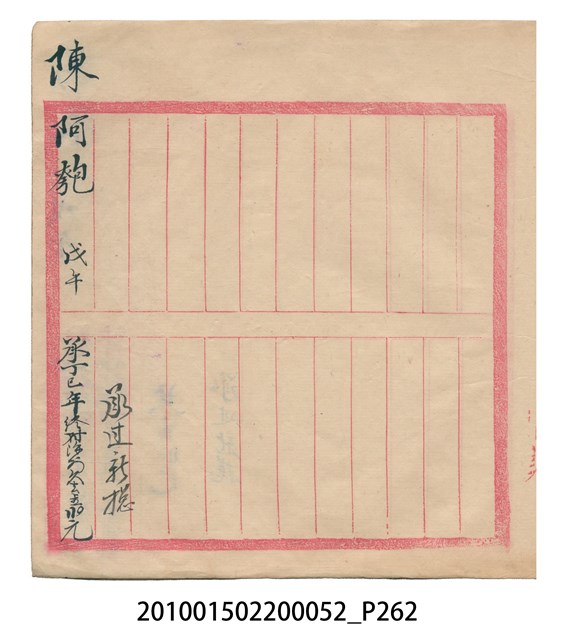 陳阿匏 戊午 承丁巳年終対除
元
承过新摠
201001502200052_P262